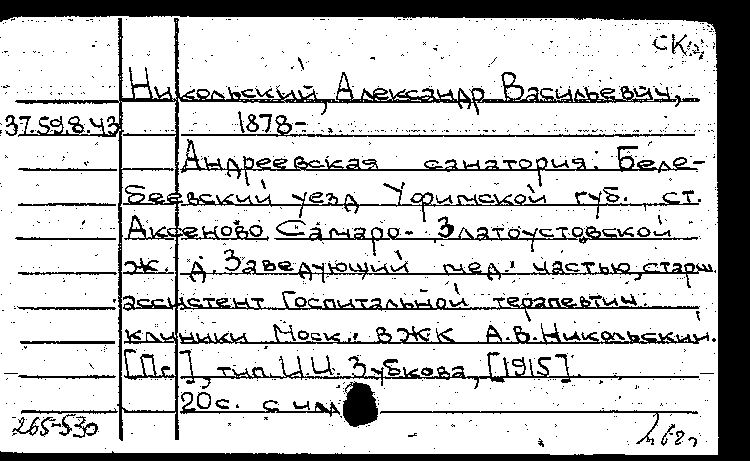 СК
Никольский, Александр Васильевич,
37.59.8.43 1878-
Андреевская санатория. Беле-
беевский уезд Уфимской губ. ст.
Аксеново Самаро-Златоустовской
ж. д. Заведующий мед. частью, старш.
ассистент Госпитальной терапевтич.
клиники Моск. ВЖК А.В. Никольский.
[Пг.], тип. И.И. Зубкова, [1915].
20с. с илл
265-530